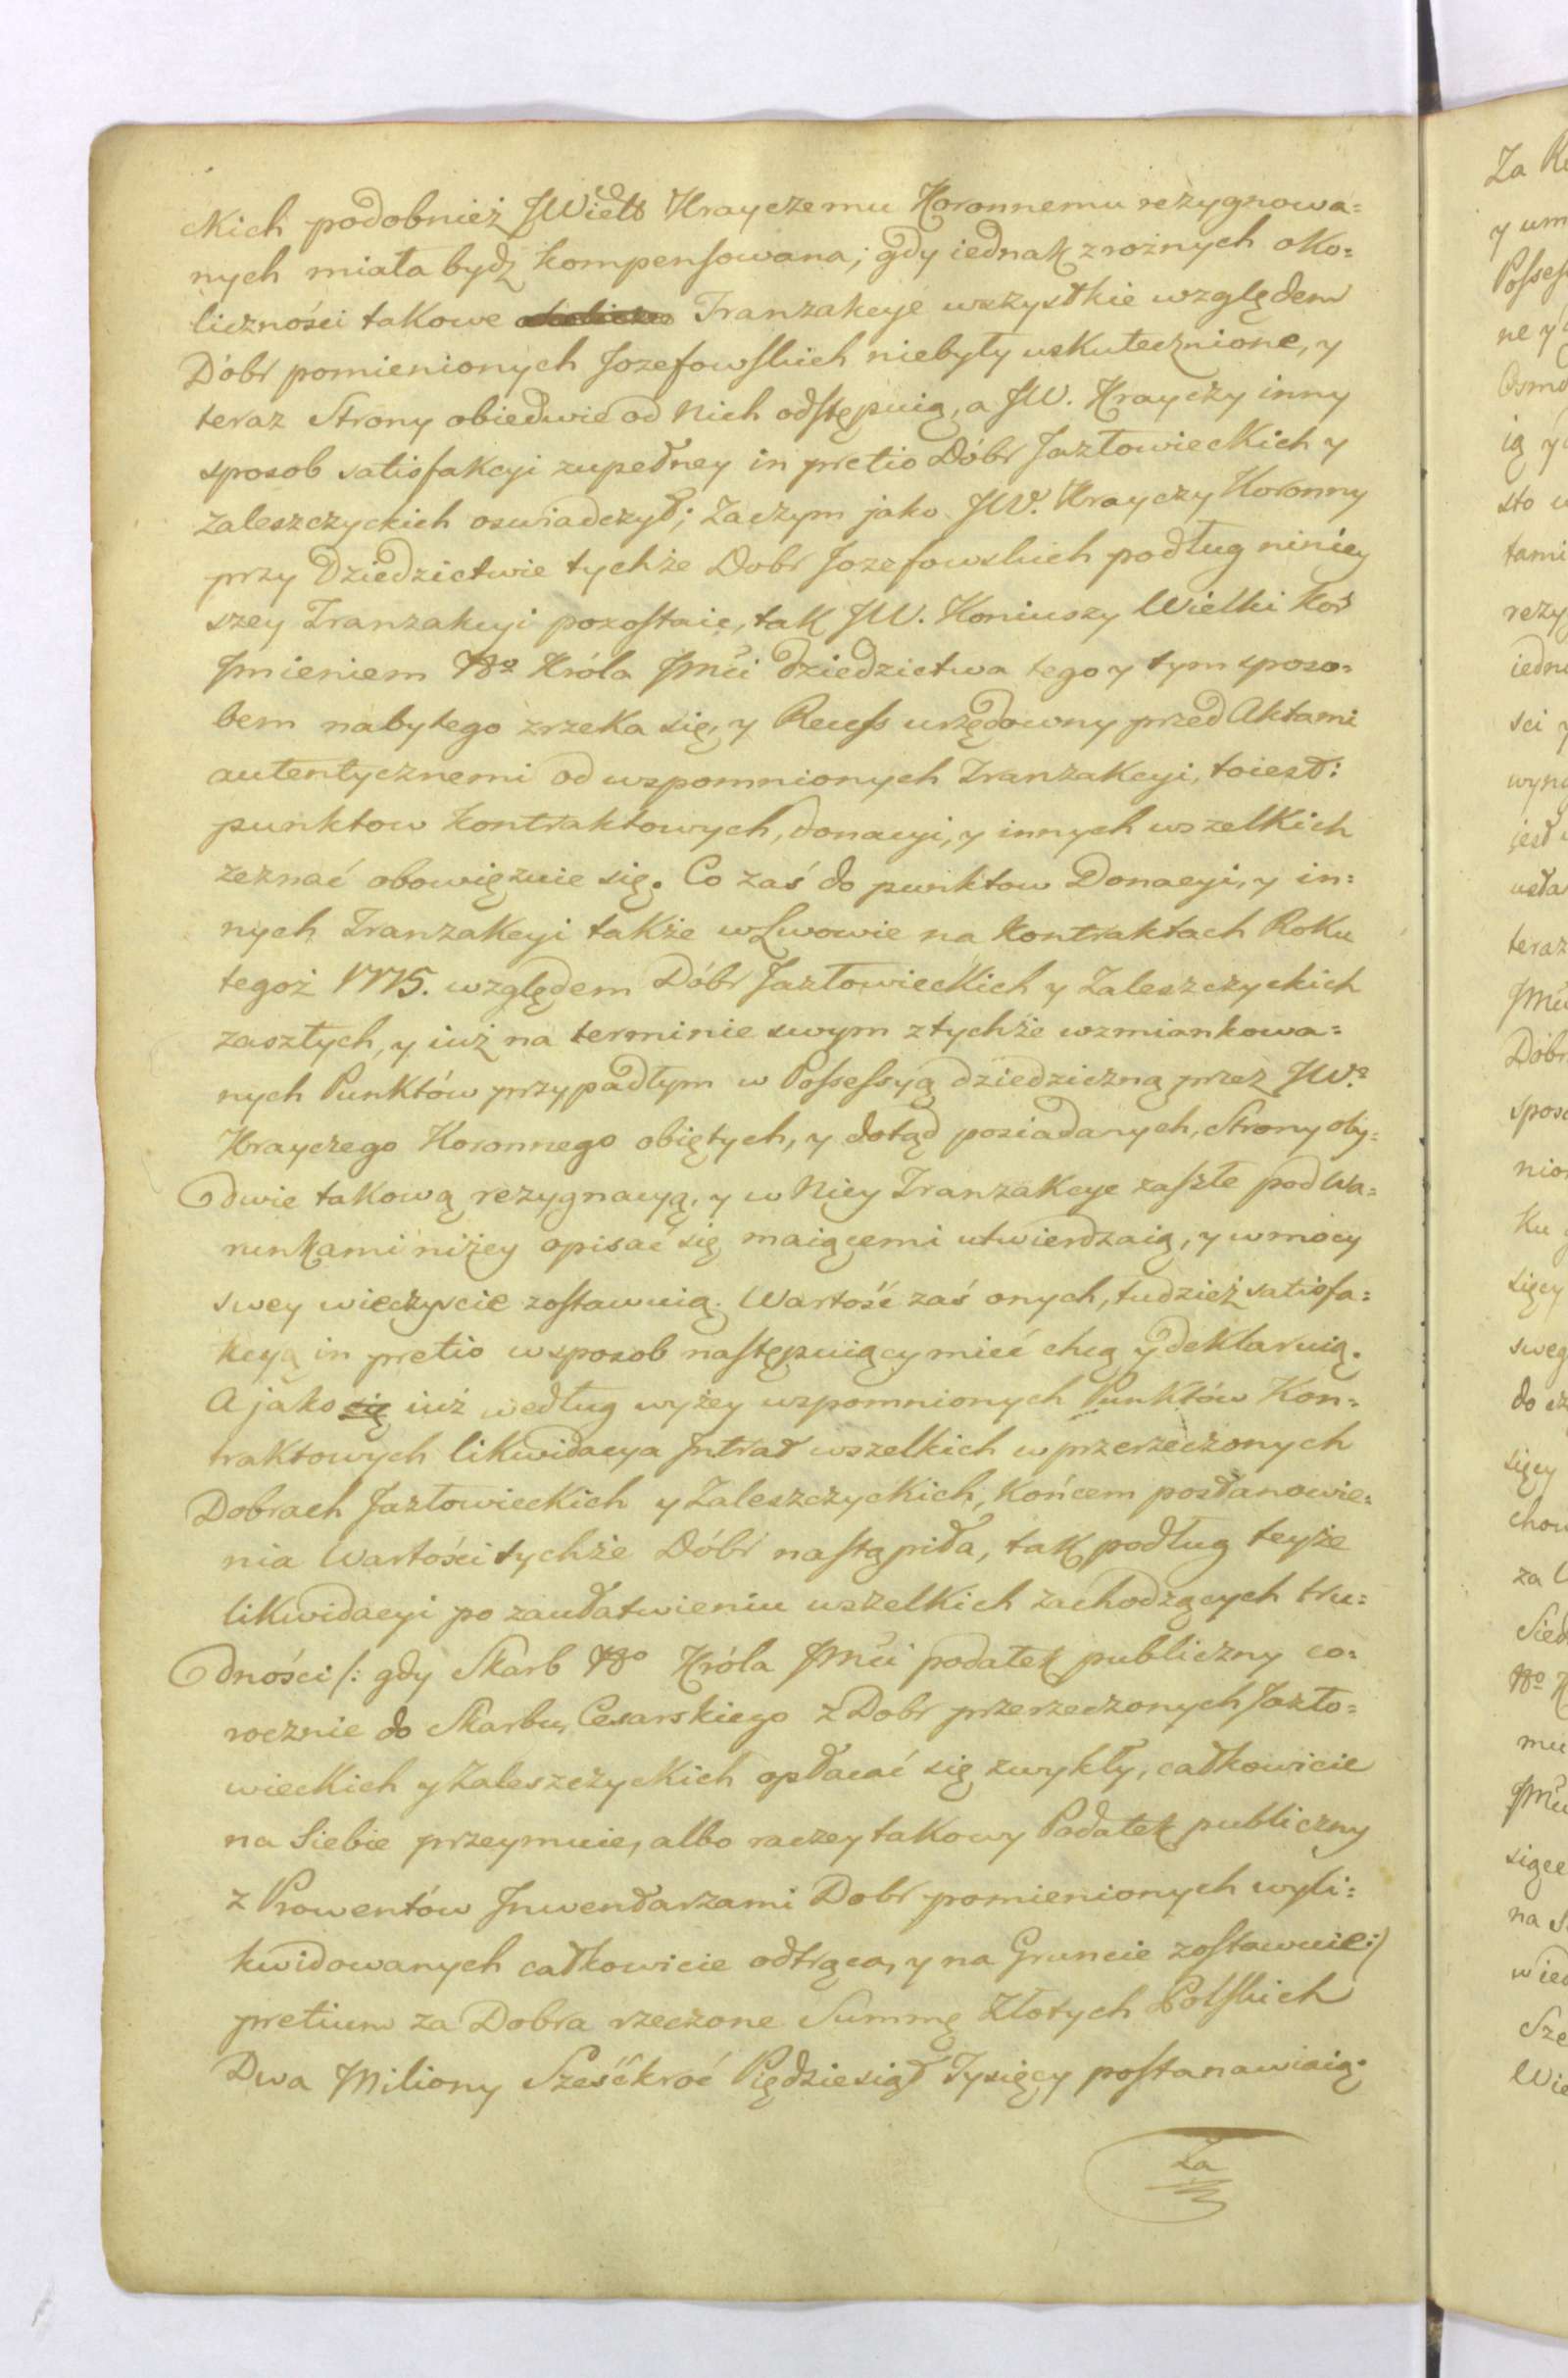 ckich podobnież JWielb Krayczemu Koronnemu rezygnowa=
nych miała bydź kompensowana; gdy iednak z rożnych oko=
liczności takowe Tranzakcye wszystkie względem
Dóbr pomienionych Jozefowskich niebyły uskutecznione, y
teraz Strony obiedwie od Nich odstępuią, a JW. Krayczy inny
sposob satisfakcyi zupełney in pretio Dóbr Jazłowieckich y
Zaleszczyckich oswiadczył; Zaczym jako JW. Krayczy Koronny
przy Dziedzictwie tychże Dobr Jozefowskich podług niniey
szey Tranzakcyi pozostaie, tak JW. Koniuszy Wielki Kor
Jmieniem Króla Jmci dziedzictwa tego y tym sposo=
bem nabytego zrzeka się, y Recess urzędowny przed Aktami
autentycznemi od wspomnionych Tranzakcyi, toiest:
punktow kontraktowych, donacyi, y innych wszelkich
zeznać obowięzuie się. Co zaś do punktow Donacyi, y in=
nych Tranzakcyi także w Lwowie na kontraktach Roku
tegoż 1775. względem Dóbr Jazłowieckich y Zaleszczyckich
zaszłych, y iuż na terminie swym z tychże wzmiankowa=
nych Punktów przypadłym w Possessyą dziedziczną przez JW.º
Krayczego Koronnego obiętych, y dotąd posiadanych, Strony oby=
dwie takową rezygnacyą, y w Niey Tranzakcye zaszłe pod wa=
runkami niżey opisać się maiącemi utwierdzaią, y w mocy
swey wieczyście zostawuią. Wartość zaś onych, tudzież satisfa=
kcyą in pretio w sposob następuiący mieć chcą y deklaruią.
A jako się iuż według wyżey wspomnionych Punktów Kon=
traktowych likwidacya Jntrat wszelkich w przerzeczonych
Dobrach Jazłowieckich y Zaleszczyckich, końcem postanowie=
nia Wartości tychże Dóbr nastąpiła, tak podług teyże
likwidacyi po zaułatwieniu wszelkich zachodzących tru=
dności /: gdy Skarb Króla Jmci podatek publiczny co=
rocznie do Skarbu Cesarskiego z Dobr przerzeczonych Jazło=
wieckich y Zaleszczyckich opłacać się zwykły, całkowicie
na Siebie przeymuie, albo raczey takowy Podatek publiczny
z Prowentów Jnwentarzami Dobr pomienionych wyli=
kwidowanych całkowicie odtrąca, y na Gruncie zostawuie :/
pretium za Dobra rzeczone Summę Złotych Polskich
Dwa Miliony Sześćkroć Piędziesiąt Tysięcy postanawiaią.
Za